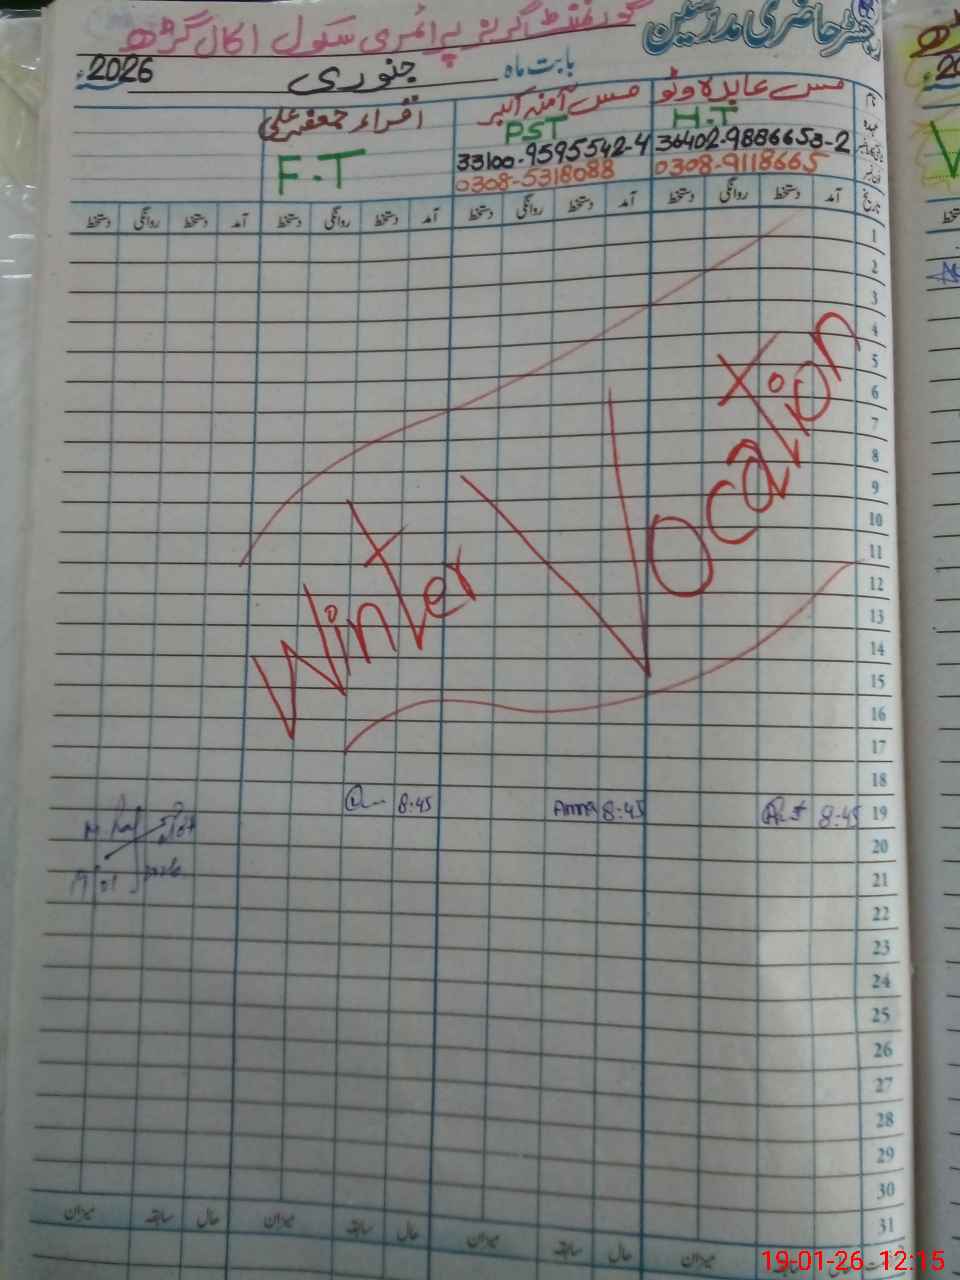 رجسٹر حاضری مدرسین گورنمنٹ گرلز پرائمری سکول اکال گڑھ
بابت ماہ جنوری 2026ء
مس عابدہ وٹو مس آمنہ اکبر اقراء جعفر علی
H.T PST F.T
36402-9886653-2 33100-9595542-4
0308-9118665 0308-5318088
تاریخ آمد دستخط روانگی دستخط آمد دستخط روانگی دستخط آمد دستخط روانگی دستخط آمد دستخط روانگی دستخط
1
2
3
4
5
6
7
8
9
10
11
12
13
14
15
16
17
18
Winter Vocation
19 8:45 8:45 Amna 8:45
20
21
22
23
24
25
26
27
28
29
30
31
حال سابقہ میزان حال سابقہ میزان حال سابقہ میزان
19-01-26 12:15